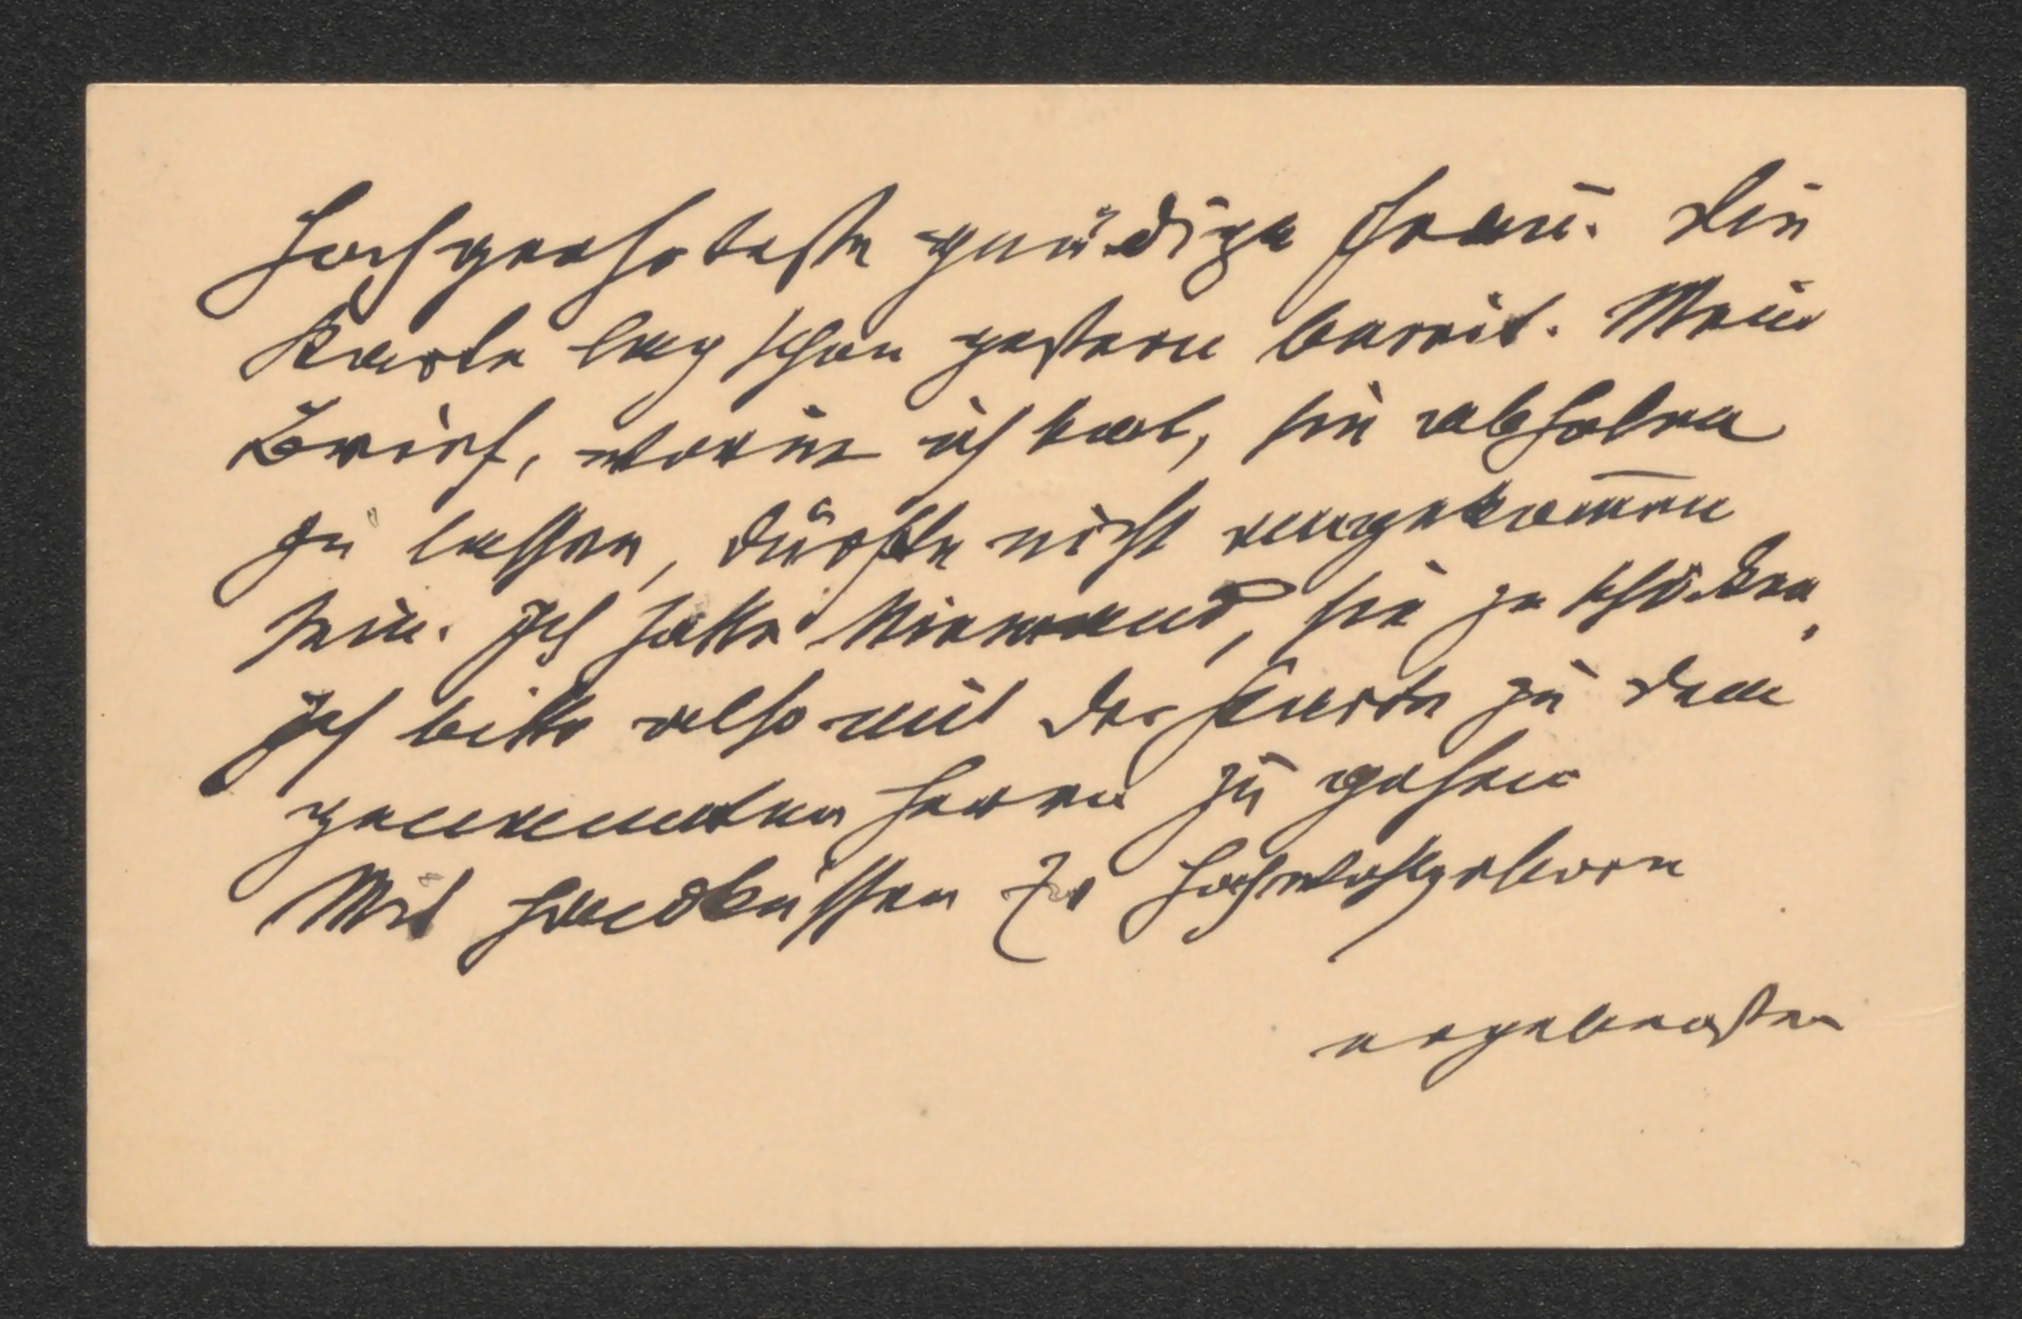 Hochgeehrteste gnädige Frau. Die
Karte lag schon gestern bereit. Mein
Brief, worin ich bat, sie abholen
zu lassen, dürfte nicht angekom̅en
sein. Ich hatte Niemand, sie zu schicken.
Ich bitte also mit der Karte zu dem
genannten Herrn zu gehen
Mit Handküssen Ew Hochwohlgeboren
ergebenster